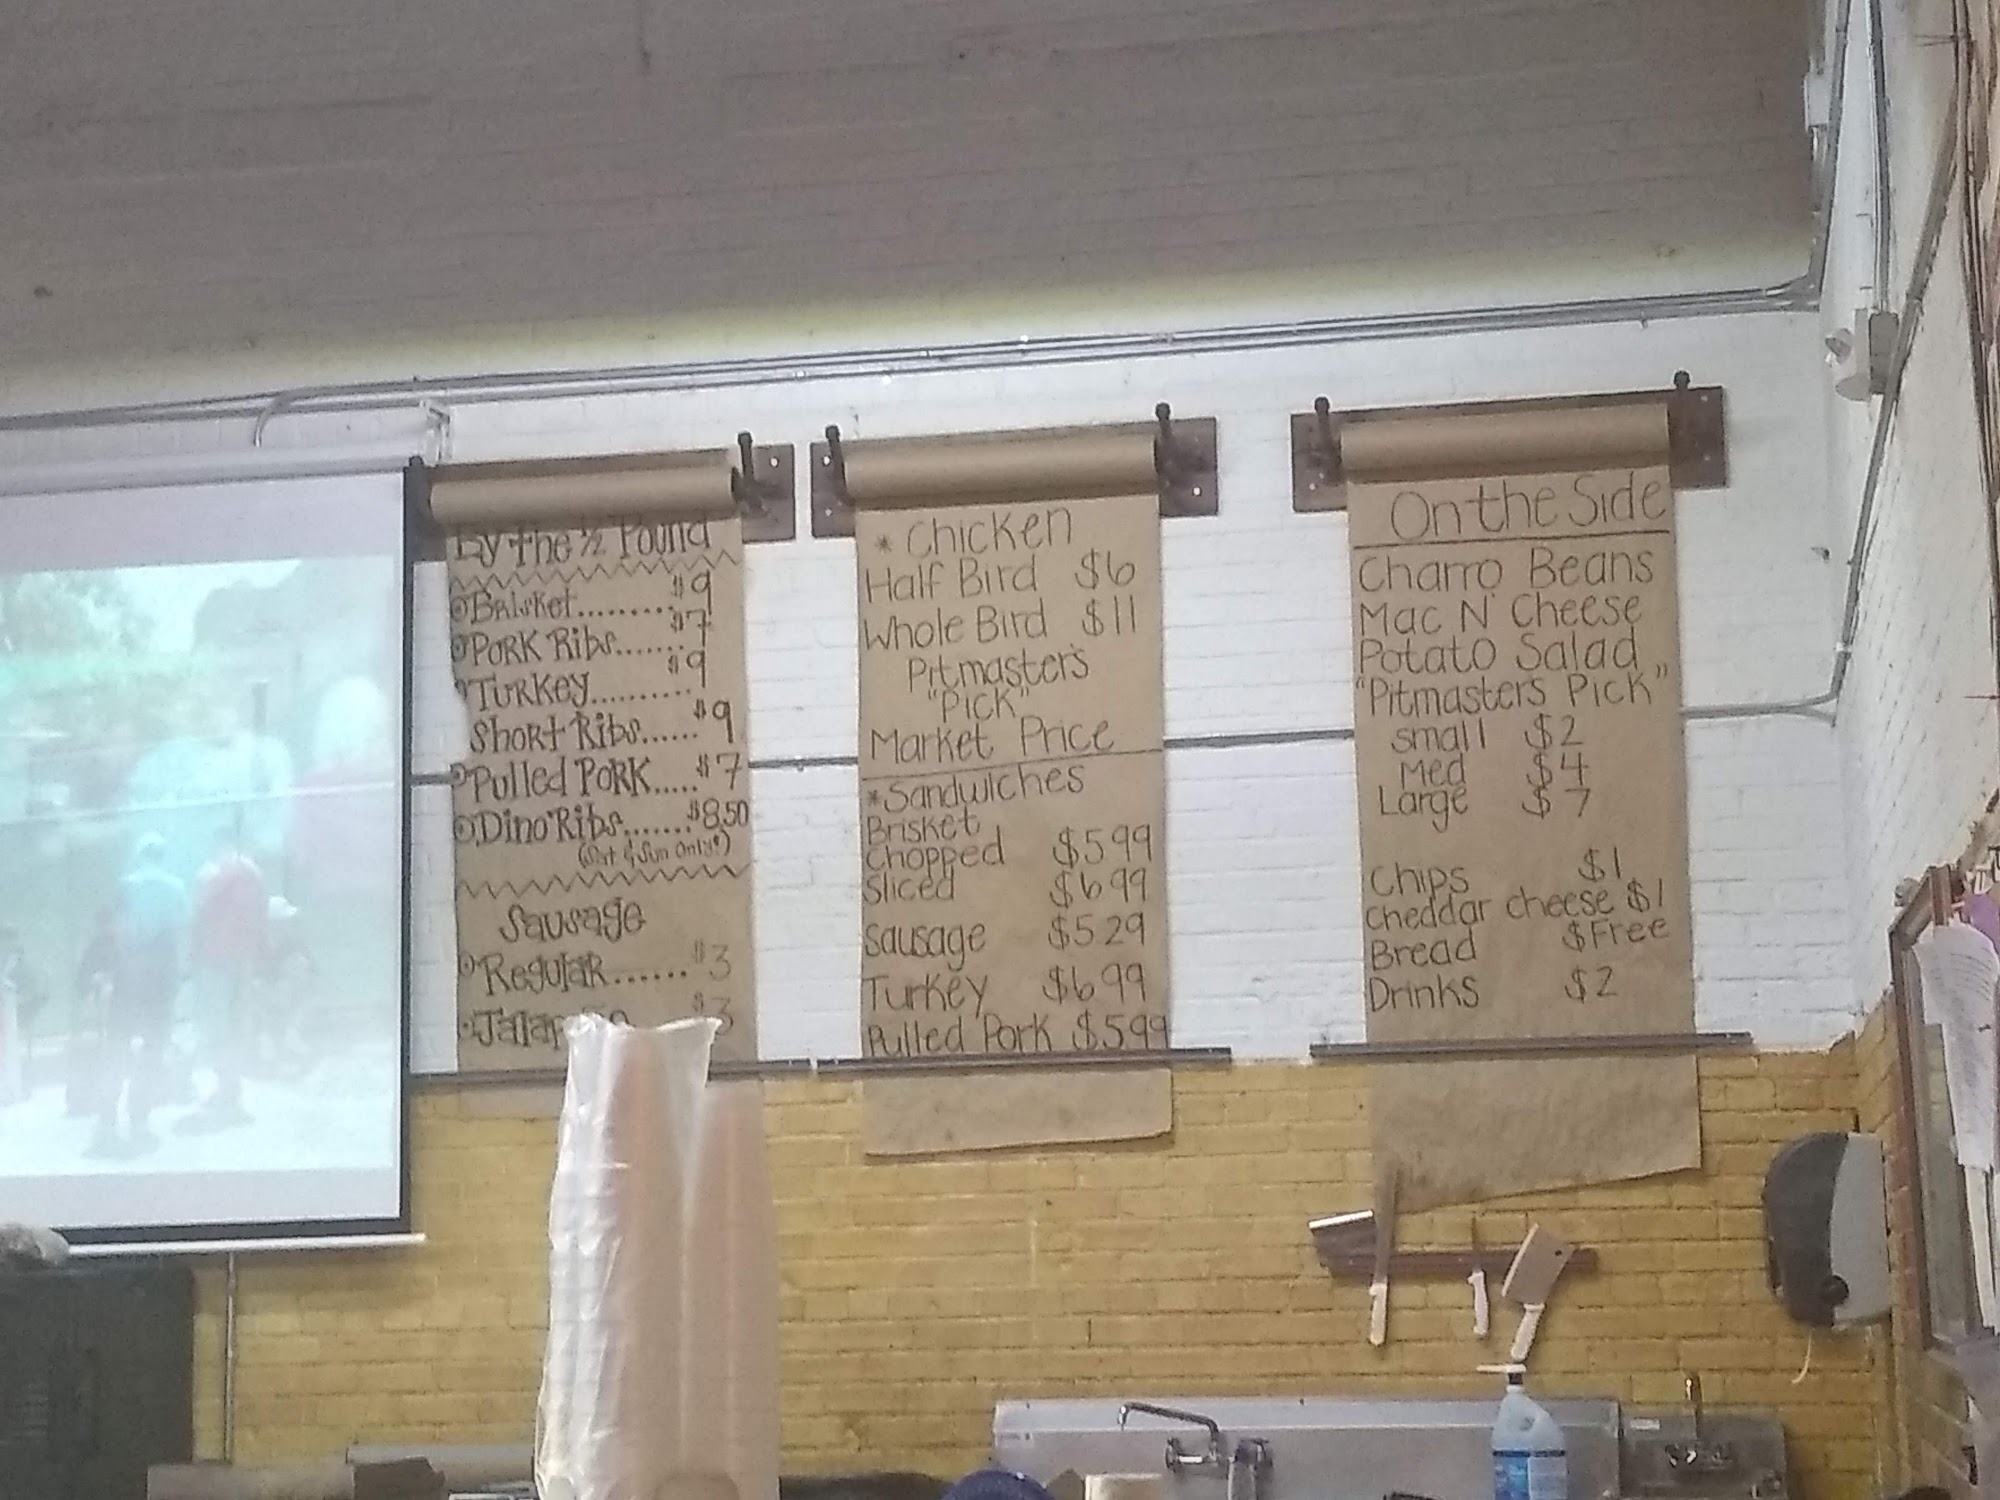 By the ½ Pound
Brisket......... $9
Pork Ribs....... $7
Turkey.......... $9
Short Ribs...... $9
Pulled Pork..... $7
Dino Ribs....... $8.50
(Sat & Sun Only!)
Sausage
Regular...... $3
$3
* Chicken
Half Bird $6
Whole Bird $11
Pitmaster's
"Pick"
Market Price
*Sandwiches
Brisket
Chopped $5 99
Sliced $6 99
Sausage $5 29
Turkey $6 99
Pulled Pork $5 99
On the Side
Charro Beans
Mac N' Cheese
Potato Salad
"Pitmasters Pick"
small $2
Med $4
Large $7
Chips $1
Cheddar cheese $1
Bread $Free
Drinks $2